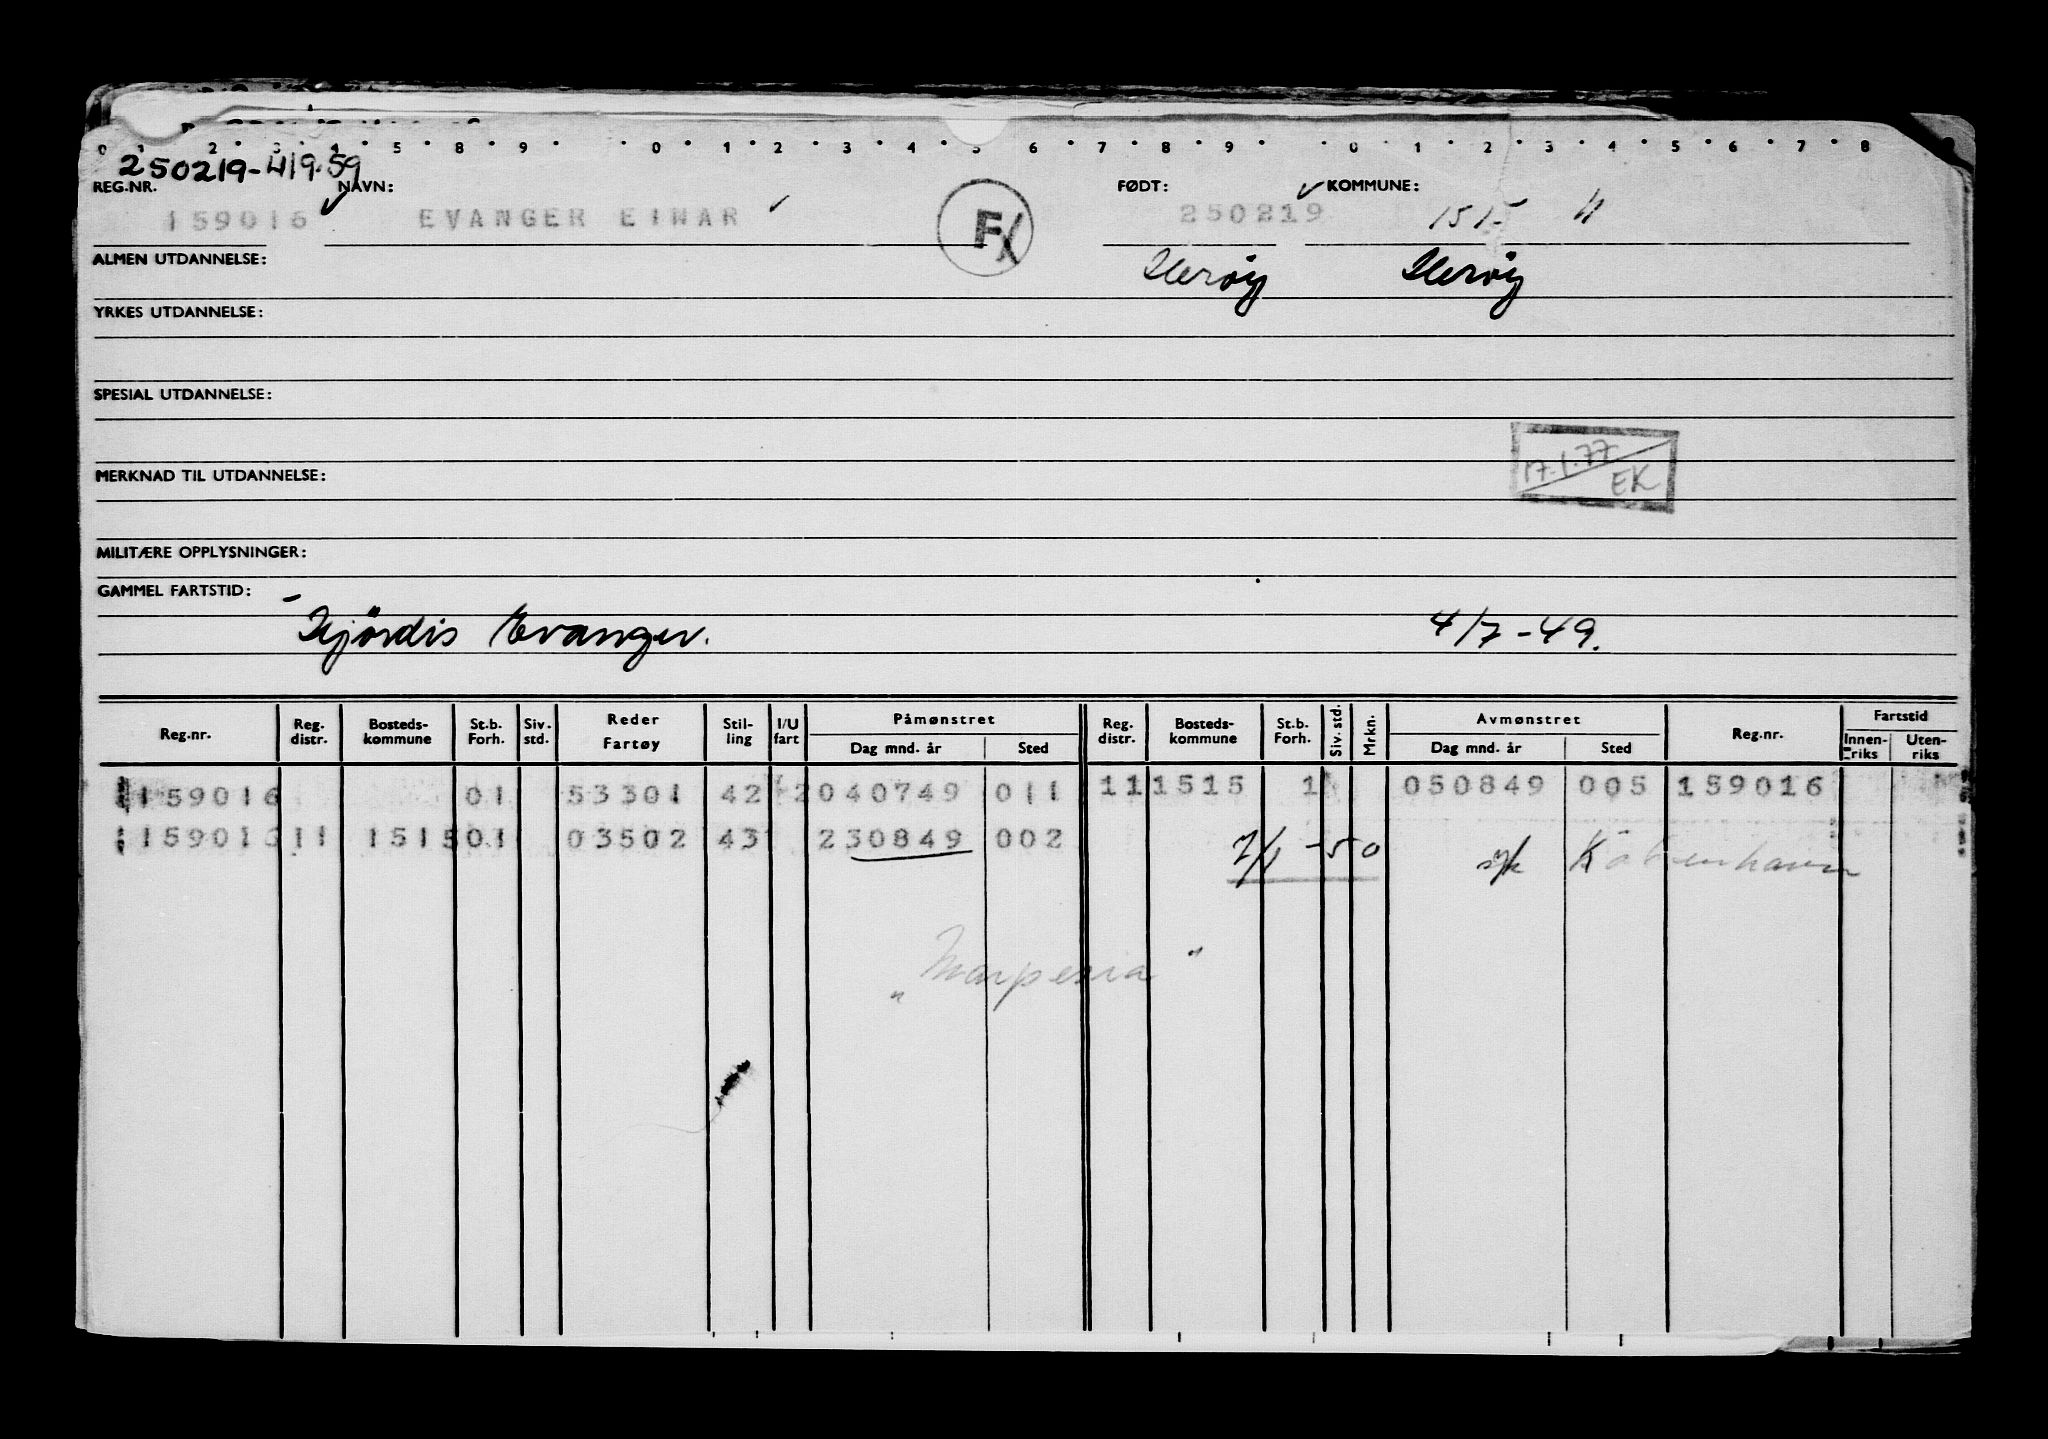 0 1 2 3 4 5 8 9 0 1 2 3 4 5 6 7 8 9 0 1 2 3 4 5 6 7 8
250219-419.59
REG.NR. NAVN: FØDT: KOMMUNE:
159016 EVANGER EINAR F 250219 1515
ALMEN UTDANNELSE: Herøy Herøy
YRKES UTDANNELSE:
SPESIAL UTDANNELSE:
17.1.77
EK
MERKNAD TIL UTDANNELSE:
MILITÆRE OPPLYSNINGER:
GAMMEL FARTSTID:
Hjördis Evanger. 4/7-49.
Reg.nr. Reg. distr. Bosteds-kommune St.b. Forh. Siv. std. Reder Fartøy Stil-ling I/U fart Påmønstret Dag mnd. år Sted Reg. distr. Bosteds-kommune St.b. Forh. Siv. std. Mrkn. Avmønstret Dag mnd. år Sted Reg.nr. Fartstid Innen-riks Uten-riks
159016 01 53301 42 2 040749 011 11 1515 1 050849 005 159016
159016 11 1515 01 03502 43 230849 002 7/1-50 syk Köbenhavn